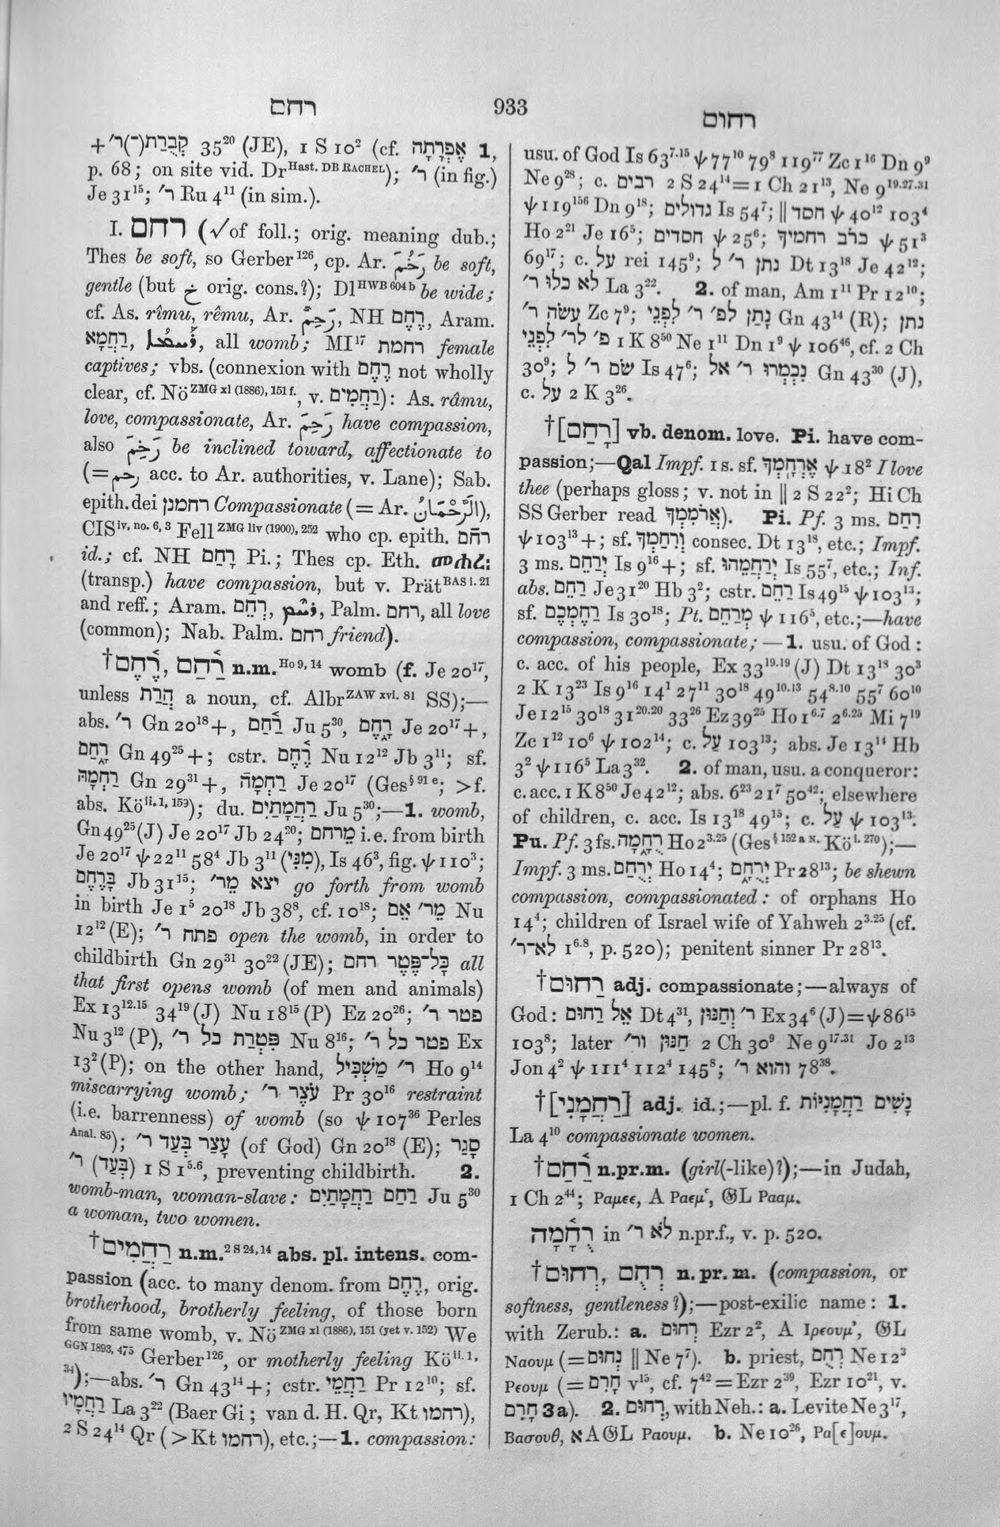 רחם
933
רחום
+ קִבְרַת(־)ר׳ 35²⁰ (JE), 1 S 10² (cf. אֶפְרָתָה 1,
p. 68; on site vid. Dr^Hast. DB RACHEL); ר׳ (in fig.)
Je 31¹⁵; ר׳ Ru 4¹¹ (in sim.).
I. רחם (√of foll.; orig. meaning dub.;
Thes be soft, so Gerber¹²⁶, cp. Ar. be soft,
gentle (but orig. cons.?); Dl^HWB 604 b be wide;
cf. As. rîmu, rêmu, Ar. , NH רֶחֶם, Aram.
רַחֲמָא, , all womb; MI¹⁷ רחמת female
captives; vbs. (connexion with רֶחֶם not wholly
clear, cf. Nö^ZMG xl (1886), 151 f., v. רַחֲמִים): As. râmu,
love, compassionate, Ar. have compassion,
also be inclined toward, affectionate to
(= acc. to Ar. authorities, v. Lane); Sab.
epith. dei רחמנן Compassionate (= Ar. الرَّحْمَان),
CIS^iv, no. 6, 3 Fell^ZMG liv (1900), 252 who cp. epith. רחם
id.; cf. NH רִחַם Pi.; Thes cp. Eth. መሐረ:
(transp.) have compassion, but v. Prät^BAS i. 21
and reff.; Aram. רְחֵם, , Palm. רחם, all love
(common); Nab. Palm. רחם friend).
†רֶחֶם, רַחַם n.m.^Ho 9, 14 womb (f. Je 20¹⁷,
unless הֲרַת a noun, cf. Albr^ZAW xvi. 81 SS);—
abs. ר׳ Gn 20¹⁸+, רַחַם Ju 5³⁰, רֶחֶם Je 20¹⁷+,
רָחַם Gn 49²⁵+; cstr. רֶחֶם Nu 12¹² Jb 3¹¹; sf.
רַחְמָהּ Gn 29³¹+, רַחְמָה Je 20¹⁷ (Ges^§ 91 e; >f.
abs. Kö^ii. 1, 159); du. רַחֲמָתַיִם Ju 5³⁰;—1. womb,
Gn 49²⁵ (J) Je 20¹⁷ Jb 24²⁰; מֵרחם i.e. from birth
Je 20¹⁷ ψ 22¹¹ 58⁴ Jb 3¹¹ (מִנִּי), Is 46³, fig. ψ 110³;
בָּרֶחֶם Jb 31¹⁵; יצא מֵר׳ go forth from womb
in birth Je 1⁵ 20¹⁸ Jb 38⁸, cf. 10¹⁸; מֵר׳ אֵם Nu
12¹² (E); פתח ר׳ open the womb, in order to
childbirth Gn 29³¹ 30²² (JE); כָּל־פֶּטֶר רחם all
that first opens womb (of men and animals)
Ex 13¹²·¹⁵ 34¹⁹ (J) Nu 18¹⁵ (P) Ez 20²⁶; פטר ר׳
Nu 3¹² (P), פִּטְרַת כל ר׳ Nu 8¹⁶; פטר כל ר׳ Ex
13² (P); on the other hand, מַשְׁכִּיל ר׳ Ho 9¹⁴
miscarrying womb; עֹצֶר ר׳ Pr 30¹⁶ restraint
(i.e. barrenness) of womb (so ψ 107³⁶ Perles
Anal. 85); עָצַר בְּעַד ר׳ (of God) Gn 20¹⁸ (E); סָגַר
ר׳ (בְּעַד) 1 S 1⁵·⁶, preventing childbirth. 2.
womb-man, woman-slave: רַחַם רַחֲמָתַיִם Ju 5³⁰
a woman, two women.
†רַחֲמִים n.m.^2 S 24, 14 abs. pl. intens. com-
passion (acc. to many denom. from רֶחֶם, orig.
brotherhood, brotherly feeling, of those born
from same womb, v. Nö^ZMG xl (1886), 151 (yet v. 152) We
GGN 1893, 475 Gerber¹²⁶, or motherly feeling Kö^ii. 1,
34);—abs. ר׳ Gn 43¹⁴+; cstr. רַחֲמֵי Pr 12¹⁰; sf.
רַחֲמָיו La 3²² (Baer Gi; van d. H. Qr, Kt רחמו),
2 S 24¹⁴ Qr (>Kt רחמו), etc.;—1. compassion:
usu. of God Is 63⁷·¹⁵ ψ 77¹⁰ 79⁸ 119⁷⁷ Zc 1¹⁶ Dn 9⁹
Ne 9²⁸; c. רבים 2 S 24¹⁴=1 Ch 21¹³, Ne 9¹⁹·²⁷·³¹
ψ 119¹⁵⁶ Dn 9¹⁸; גדולים Is 54⁷; ‖ חסד ψ 40¹² 103⁴
Ho 2²¹ Je 16⁵; חסדים ψ 25⁶; כרב רחמיך ψ 51³
69¹⁷; c. על rei 145⁹; נתן ר׳ ל Dt 13¹⁸ Je 42¹²;
לא כלו ר׳ La 3²². 2. of man, Am 1¹¹ Pr 12¹⁰;
עשׂה ר׳ Zc 7⁹; נָתַן לפ׳ ר׳ לִפְנֵי Gn 43¹⁴ (R); נתן
פ׳ לר׳ לִפְנֵי 1 K 8⁵⁰ Ne 1¹¹ Dn 1⁹ ψ 106⁴⁶, cf. 2 Ch
30⁹; שׂום ר׳ ל Is 47⁶; נִכְמְרוּ ר׳ אל Gn 43³⁰ (J),
c. על 2 K 3²⁶.
†[רָחַם] vb. denom. love. Pi. have com-
passion;—Qal Impf. 1 s. sf. אֶרְחָמְךָ ψ 18² I love
thee (perhaps gloss; v. not in ‖ 2 S 22²; Hi Ch
SS Gerber read אֲרֹמִמְךָ). Pi. Pf. 3 ms. רִחַם
ψ 103¹³+; sf. וְרִחַמְךָ consec. Dt 13¹⁸, etc.; Impf.
3 ms. יְרַחֵם Is 9¹⁶+; sf. יְרַחֲמֵהוּ Is 55⁷, etc.; Inf.
abs. רַחֵם Je 31²⁰ Hb 3²; cstr. רַחֵם Is 49¹⁵ ψ 103¹³;
sf. רַחֶמְכֶם Is 30¹⁸; Pt. מְרַחֵם ψ 116⁵, etc.;—have
compassion, compassionate;—1. usu. of God:
c. acc. of his people, Ex 33¹⁹·¹⁹ (J) Dt 13¹⁸ 30³
2 K 13²³ Is 9¹⁶ 14¹ 27¹¹ 30¹⁸ 49¹⁰·¹³ 54⁸·¹⁰ 55⁷ 60¹⁰
Je 12¹⁵ 30¹⁸ 31²⁰·²⁰ 33²⁶ Ez 39²⁵ Ho 1⁶·⁷ 2⁶·²⁵ Mi 7¹⁹
Zc 1¹² 10⁶ ψ 102¹⁴; c. עַל 103¹³; abs. Je 13¹⁴ Hb
3² ψ 116⁵ La 3³². 2. of man, usu. a conqueror:
c. acc. 1 K 8⁵⁰ Je 42¹²; abs. 6²³ 21⁷ 50⁴²; elsewhere
of children, c. acc. Is 13¹⁸ 49¹⁵; c. עַל ψ 103¹³.
Pu. Pf. 3 fs. רֻחָמָה Ho 2³·²⁵ (Ges^§ 152 a N. Kö^i. 270);—
Impf. 3 ms. יְרֻחַם Ho 14⁴; יְרֻחָם Pr 28¹³; be shewn
compassion, compassionated: of orphans Ho
14⁴; children of Israel wife of Yahweh 2³·²⁵ (cf.
לֹא־ר׳ 1⁶·⁸, p. 520); penitent sinner Pr 28¹³.
†רַחוּם adj. compassionate;—always of
God: אֵל רַחוּם Dt 4³¹, ר׳ וְחַנּוּן Ex 34⁶ (J)=ψ 86¹⁵
103⁸; later חַנּוּן ור׳ 2 Ch 30⁹ Ne 9¹⁷·³¹ Jo 2¹³
Jon 4² ψ 111⁴ 112⁴ 145⁸; והוא ר׳ 78³⁸.
†[רַחֲמָנִי] adj. id.;—pl. f. נָשִׁים רַחֲמָנִיּוֹת
La 4¹⁰ compassionate women.
†רַחַם n.pr.m. (girl(-like)?);—in Judah,
1 Ch 2⁴⁴; Ραμεε, A Ραεμ, 𝔊L Ρααμ.
רֻחָמָה in לֹא ר׳ n.pr.f., v. p. 520.
†רְחוּם, רְחֻם n.pr.m. (compassion, or
softness, gentleness?);—post-exilic name: 1.
with Zerub.: a. רְחוּם Ezr 2², A Ιρεουμ, 𝔊L
Ναουμ (=נְחוּם ‖ Ne 7⁷). b. priest, רְחֻם Ne 12³
Ρεουμ (=חָרִם v¹⁵, cf. 7⁴²=Ezr 2³⁹, Ezr 10²¹, v.
חָרִם 3a). 2. רְחוּם, with Neh.: a. Levite Ne 3¹⁷,
Βασουθ, אA𝔊L Ραουμ. b. Ne 10²⁶, Ρα[ε]ουμ.